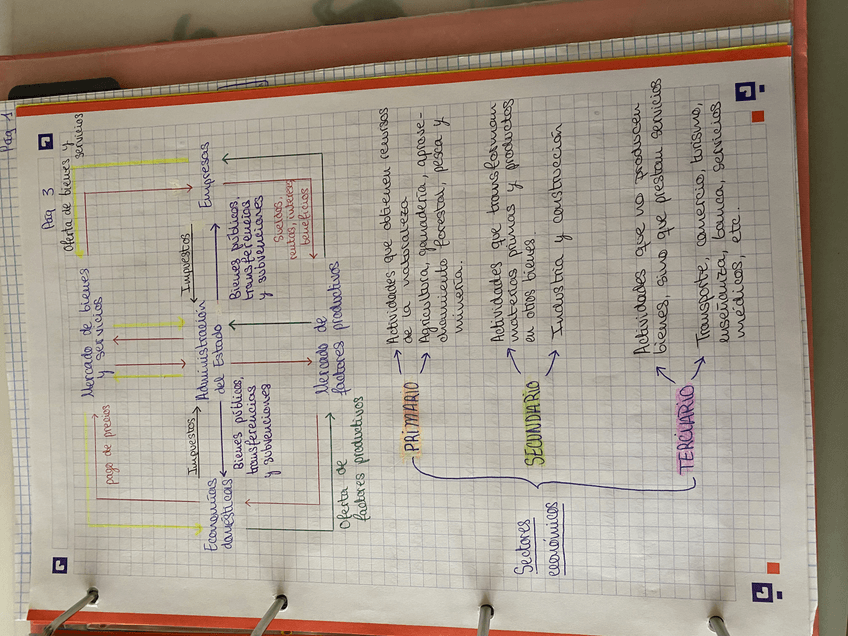 Pág 1
Pág 3
Oferta de bienes y
servicios
Mercado de bienes
y servicios
pago de precios
Economías
domésticas
Impuestos
Bienes públicos,
transferencias
y subvenciones
Administración
del Estado
Impuestos
Bienes públicos,
transferencias
y subvenciones
Empresas
Sueldos,
rentas, interés
beneficios
Oferta de
factores productivos
Mercado de
factores productivos
Sectores
económicos
PRIMARIO
Actividades que obtienen recursos
de la naturaleza
Agricultura, ganadería, aprove-
chamiento forestal, pesca y
minería.
SECUNDARIO
Actividades que transforman
materias primas y productos
en otros bienes.
Industria y construcción
TERCIARIO
Actividades que no producen
bienes, sino que prestan servicios
Transporte, comercio, turismo,
enseñanza, banca, servicios
médicos, etc.